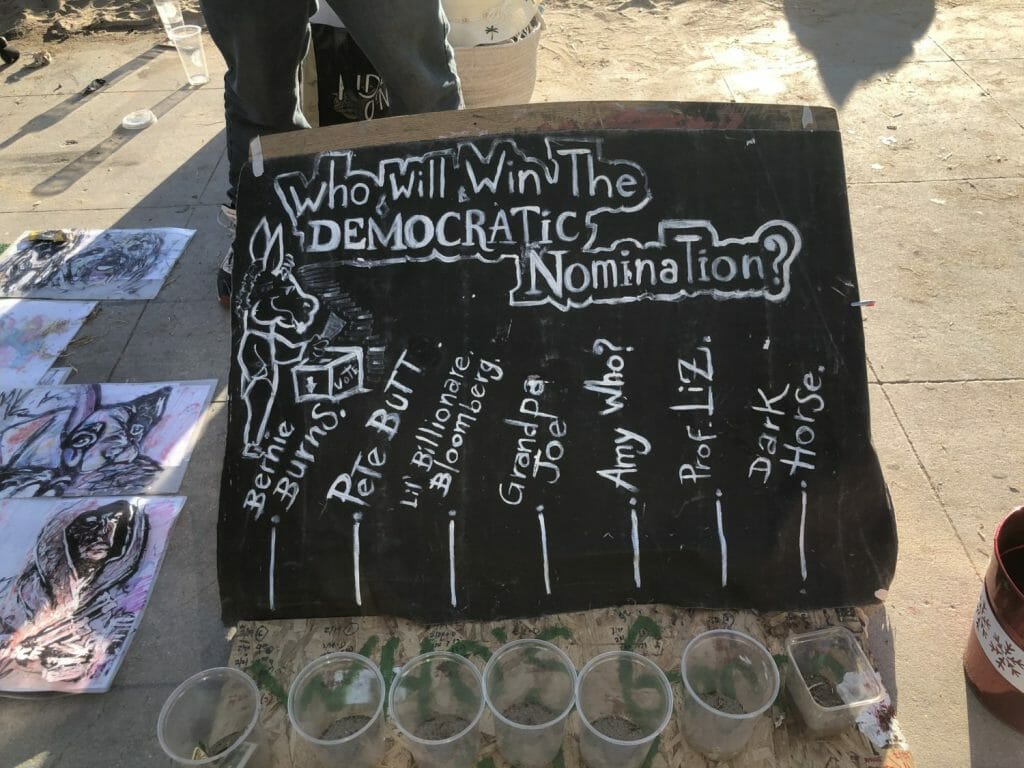 Who Will Win The
DEMOCRATIC
Nomination?
VOTE
Bernie
Burns.
PeTe BUTT
Lil' Billionare.
Bloomberg.
Grandpa
Joe
Amy Who?
Prof. LiZ.
Dark
Horse.